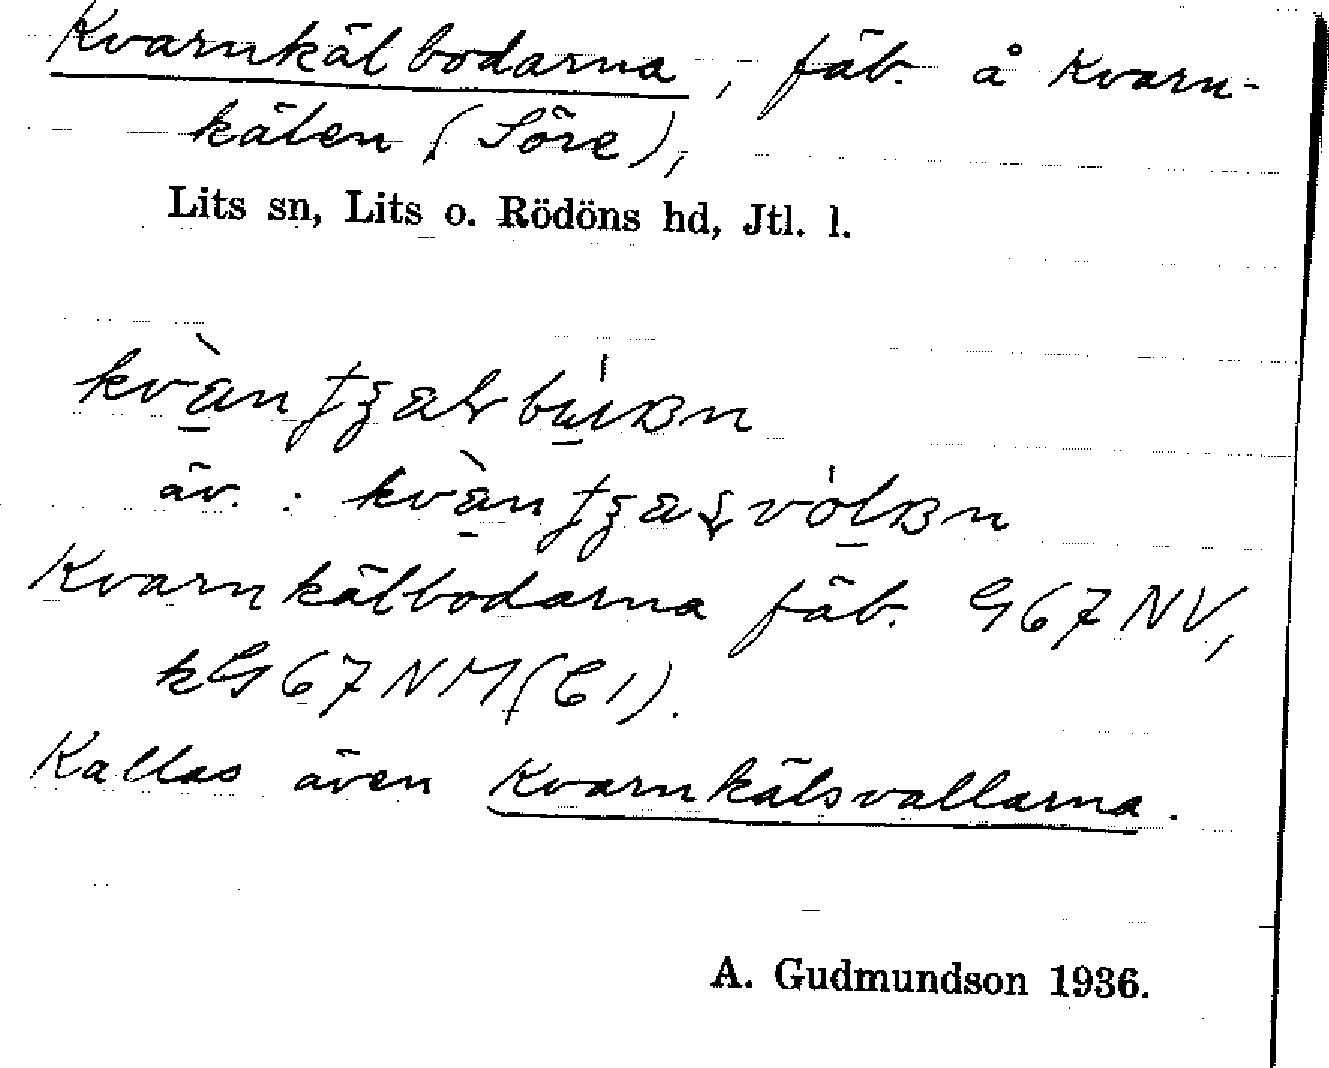 Kvarnkälbodarna, fäb. å Kvarn-
kälen (Söre),
Lits sn, Lits o. Rödöns hd, Jtl. l.
äv. :
Kvarnkälbodarna fäb. G67NV,
kG67NM(C1).
Kallas även Kvarnkälsvallarna.
A. Gudmundson 1936.